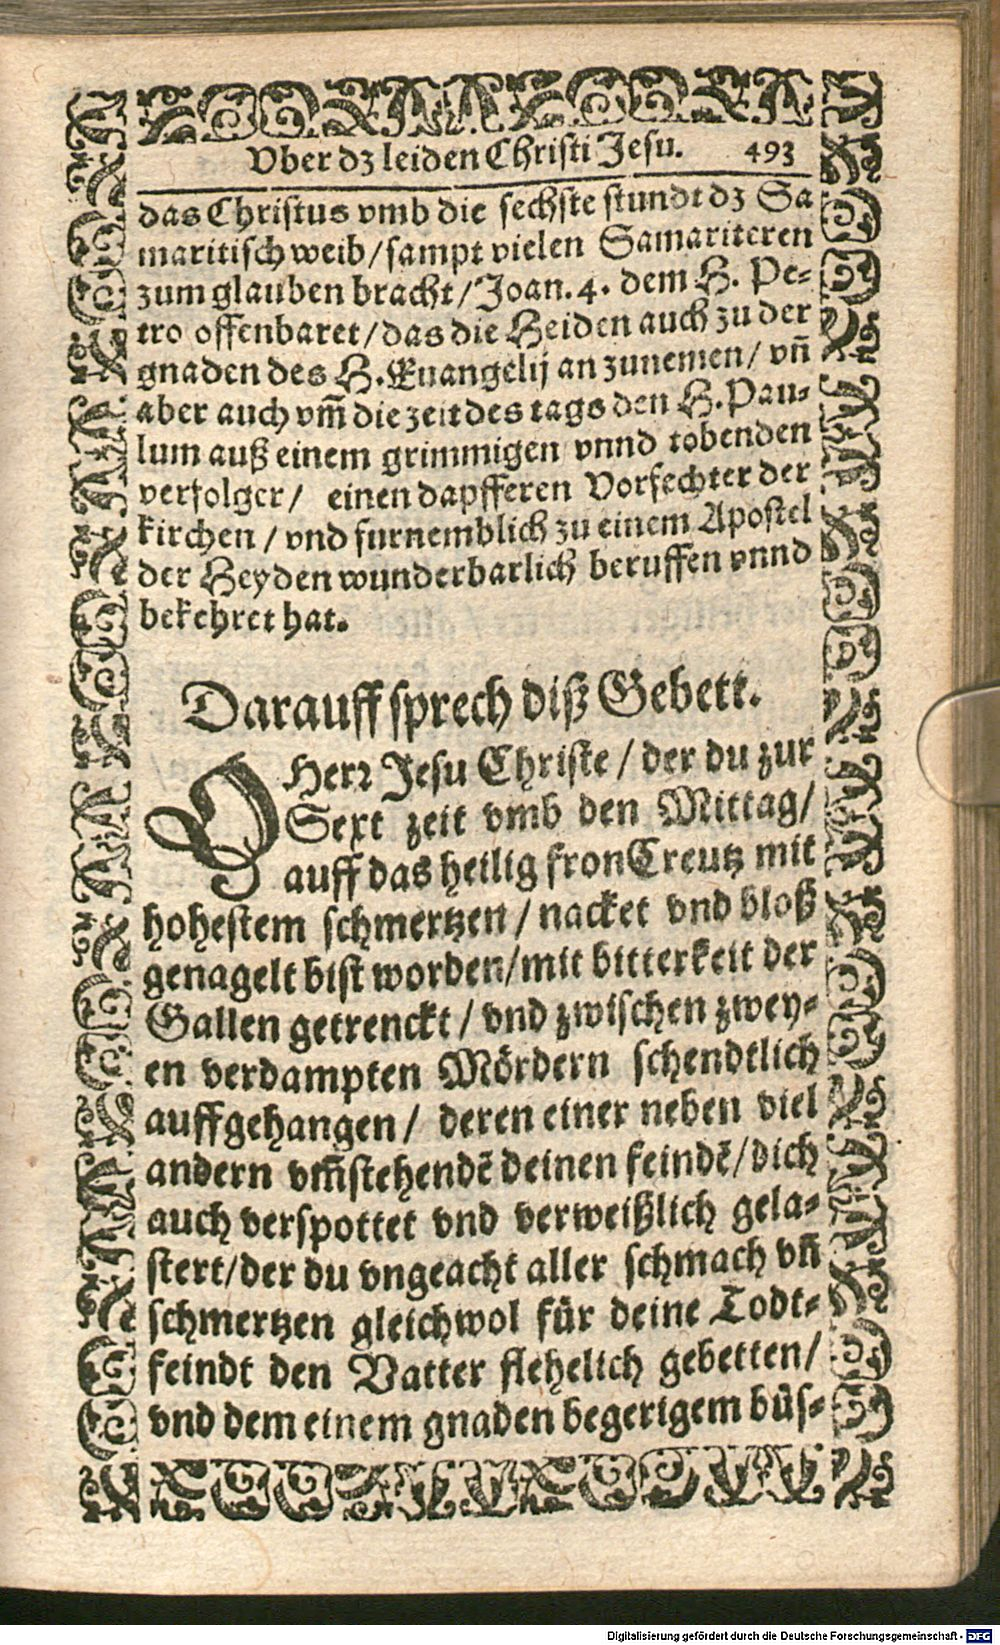 Vber dz leiden Christi Jesu. 493
das Christus vmb die sechste stundt dz Sa
maritisch weib / sampt vielen Samariteren
zum glauben bracht / Joan. 4. dem H. Pe-
tro offenbaret / das die Heiden auch zu der
gnaden des H. Euangelij an zunemen / vñ
aber auch vm̃ die zeit des tags den H. Pau-
lum auß einem grimmigen vnnd tobenden
verfolger / einen dapfferen Vorfechter der
kirchen / vnd furnemblich zu einem Apostel
der Heyden wunderbarlich beruffen vnnd
bekehret hat.
Darauff sprech diß Gebett.
O Herr Jesu Christe / der du zur
Sext zeit vmb den Mittag /
auff das heilig fron Creutz mit
hohestem schmertzen / nacket vnd bloß
genagelt bist worden / mit bitterkeit der
Gallen getrenckt / vnd zwischen zwey-
en verdampten Mördern schendtlich
auffgehangen / deren einer neben viel
andern vm̃stehendẽ deinen feindẽ / dich
auch verspottet vnd verweißlich gela-
stert / der du vngeacht aller schmach vñ
schmertzen gleichwol für deine Todt-
feindt den Vatter flehelich gebetten /
vnd dem einem gnaden begerigem büs-
Digitalisierung gefördert durch die Deutsche Forschungsgemeinschaft - DFG